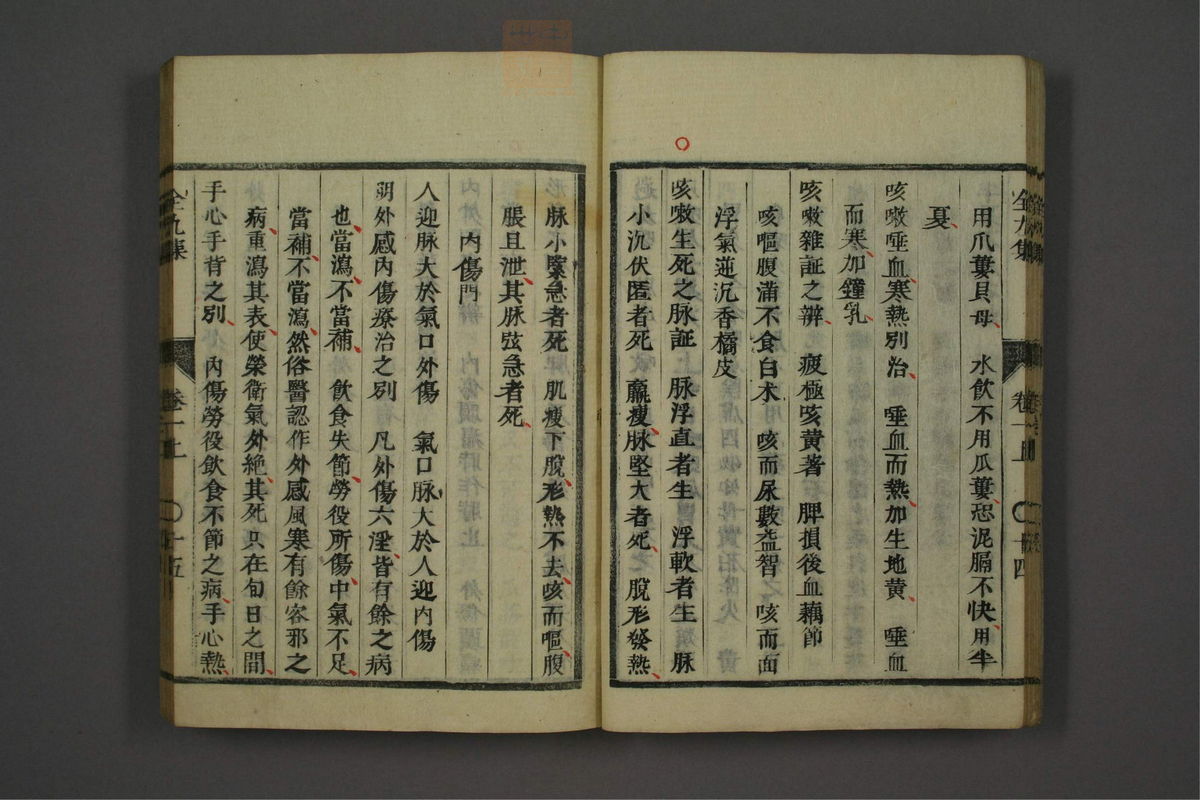 用爪蔞貝母　水飲不用瓜蔞恐泥膈不快用半
夏
咳嗽唾血寒熱別治　唾血而熱加生地黄　唾血
而寒加鐘乳
咳嗽雜証之辨　疲極咳黄蓍　脾損後血藕節
咳嘔腹滿不食白朮　咳而尿數益智　咳而面
浮氣逆沉香橘皮
咳嗽生死之脉証　脉浮直者生　浮軟者生　脉
小沉伏匿者死　羸瘦脉堅大者死　脫形發熱
脉小緊急者死　肌瘦下脫形熱不去咳而嘔腹
脹且泄其脉弦急者死
内傷門
人迎脉大於氣口外傷　氣口脉大於人迎内傷
明外感内傷療治之別　凡外傷六淫皆有餘之病
也當瀉不當補　飲食失節勞役所傷中氣不足
當補不當瀉然俗醫認作外感風寒有餘客邪之
病重瀉其表使榮衛氣外絶其死只在旬日之間
手心手背之別　内傷勞役飲食不節之病手心熱
全九集　卷一上　十四
全九集　卷一上　十五